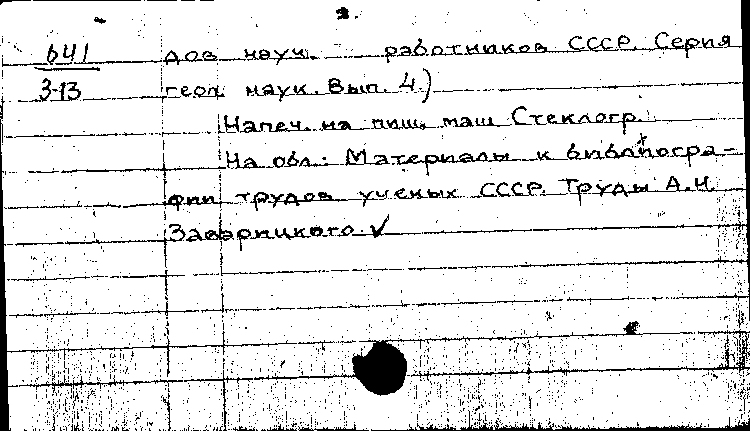 2.
641 дов науч. работников СССР. Серия
З-13 геол. наук. Вып. 4)
Напеч. на пиш. маш Стеклогр.
На обл.: Материалы к библиогра-
фии трудов ученых СССР. Труды А.Н.
Заварицкого. ✓